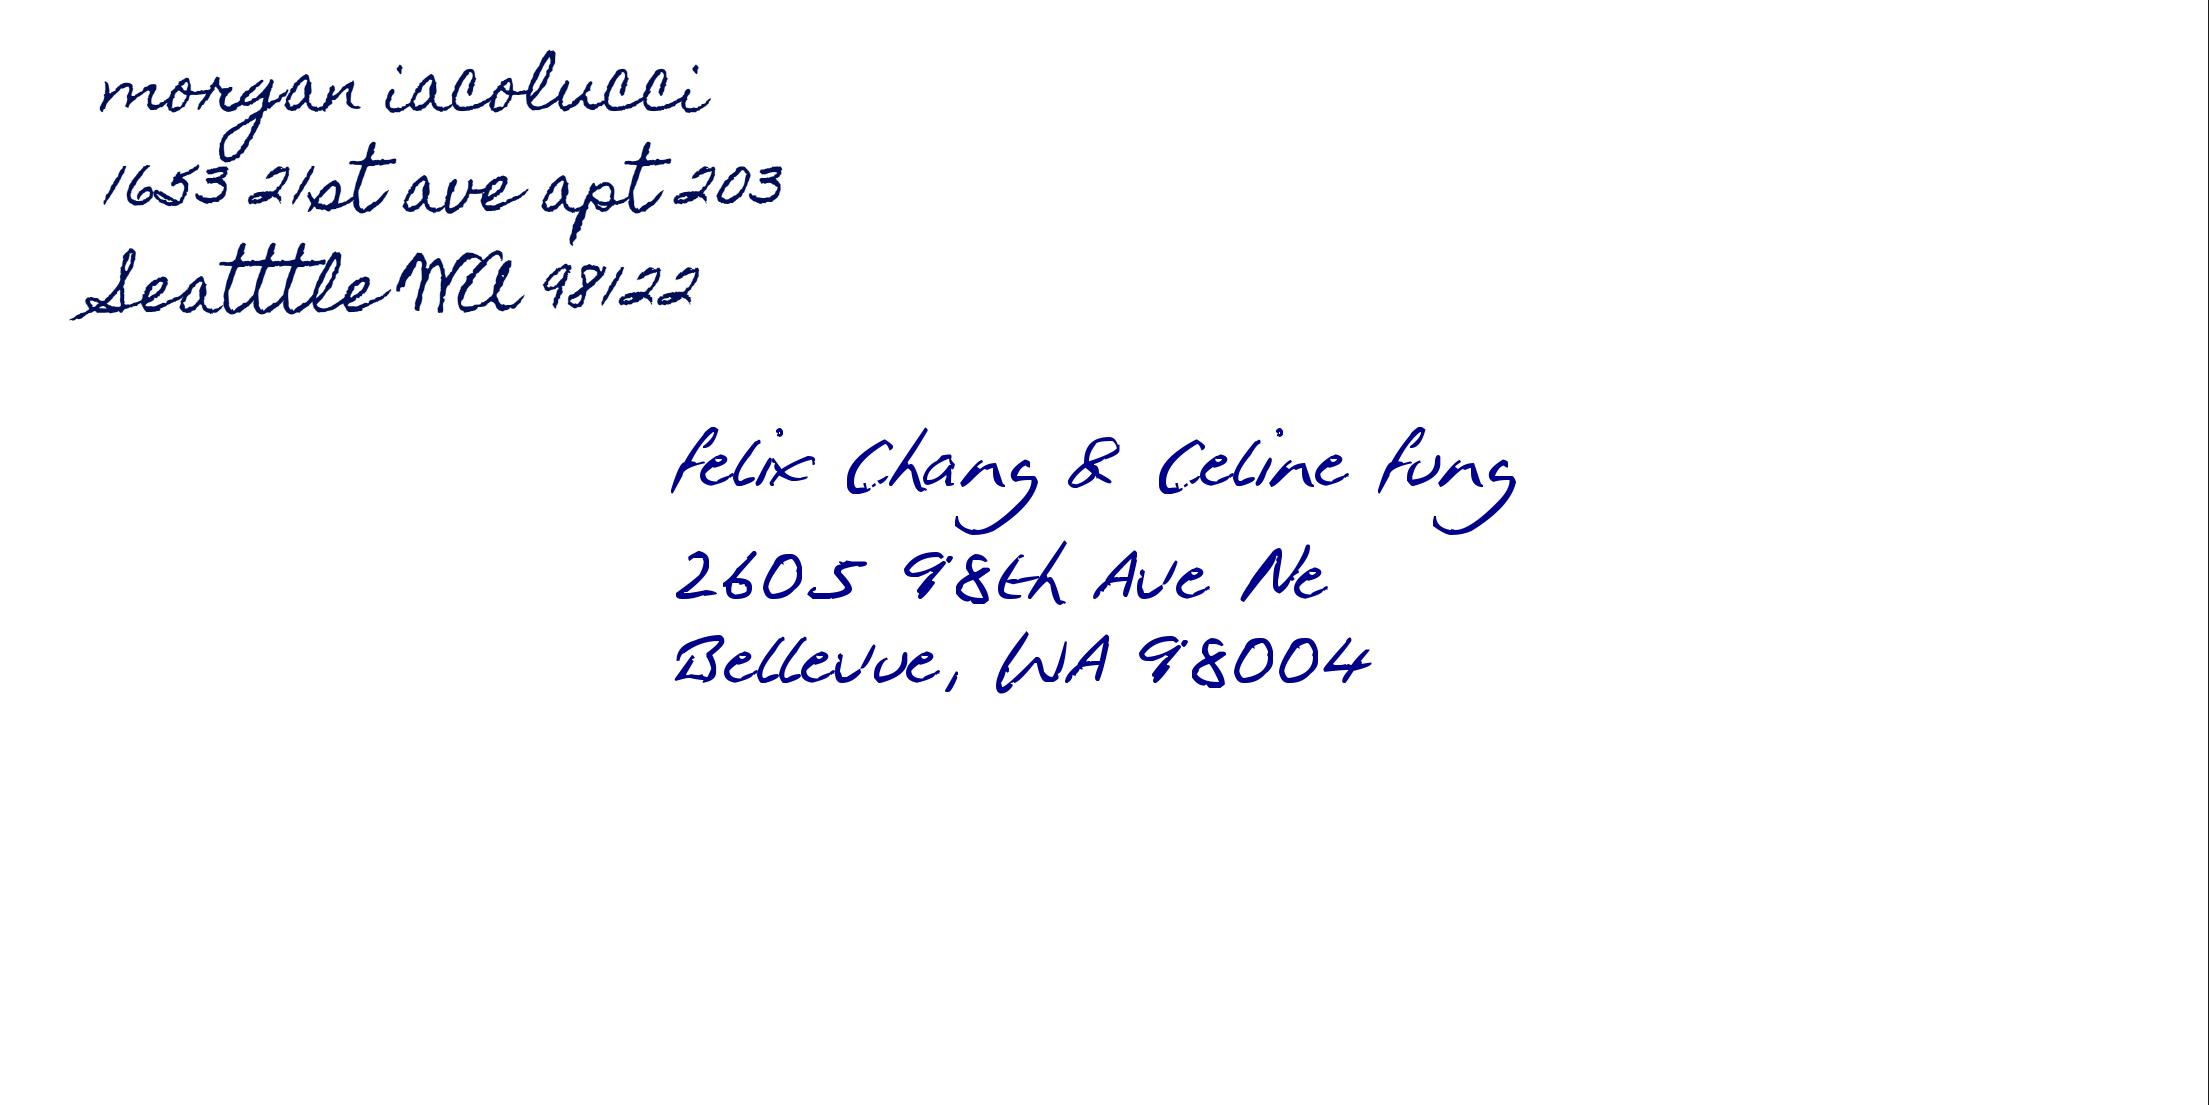 morgan iacolucci
1653 21st ave apt 203
Seatttle WA 98122
Felix Chang & Celine Fung
2605 98th Ave Ne
Bellevue, WA 98004